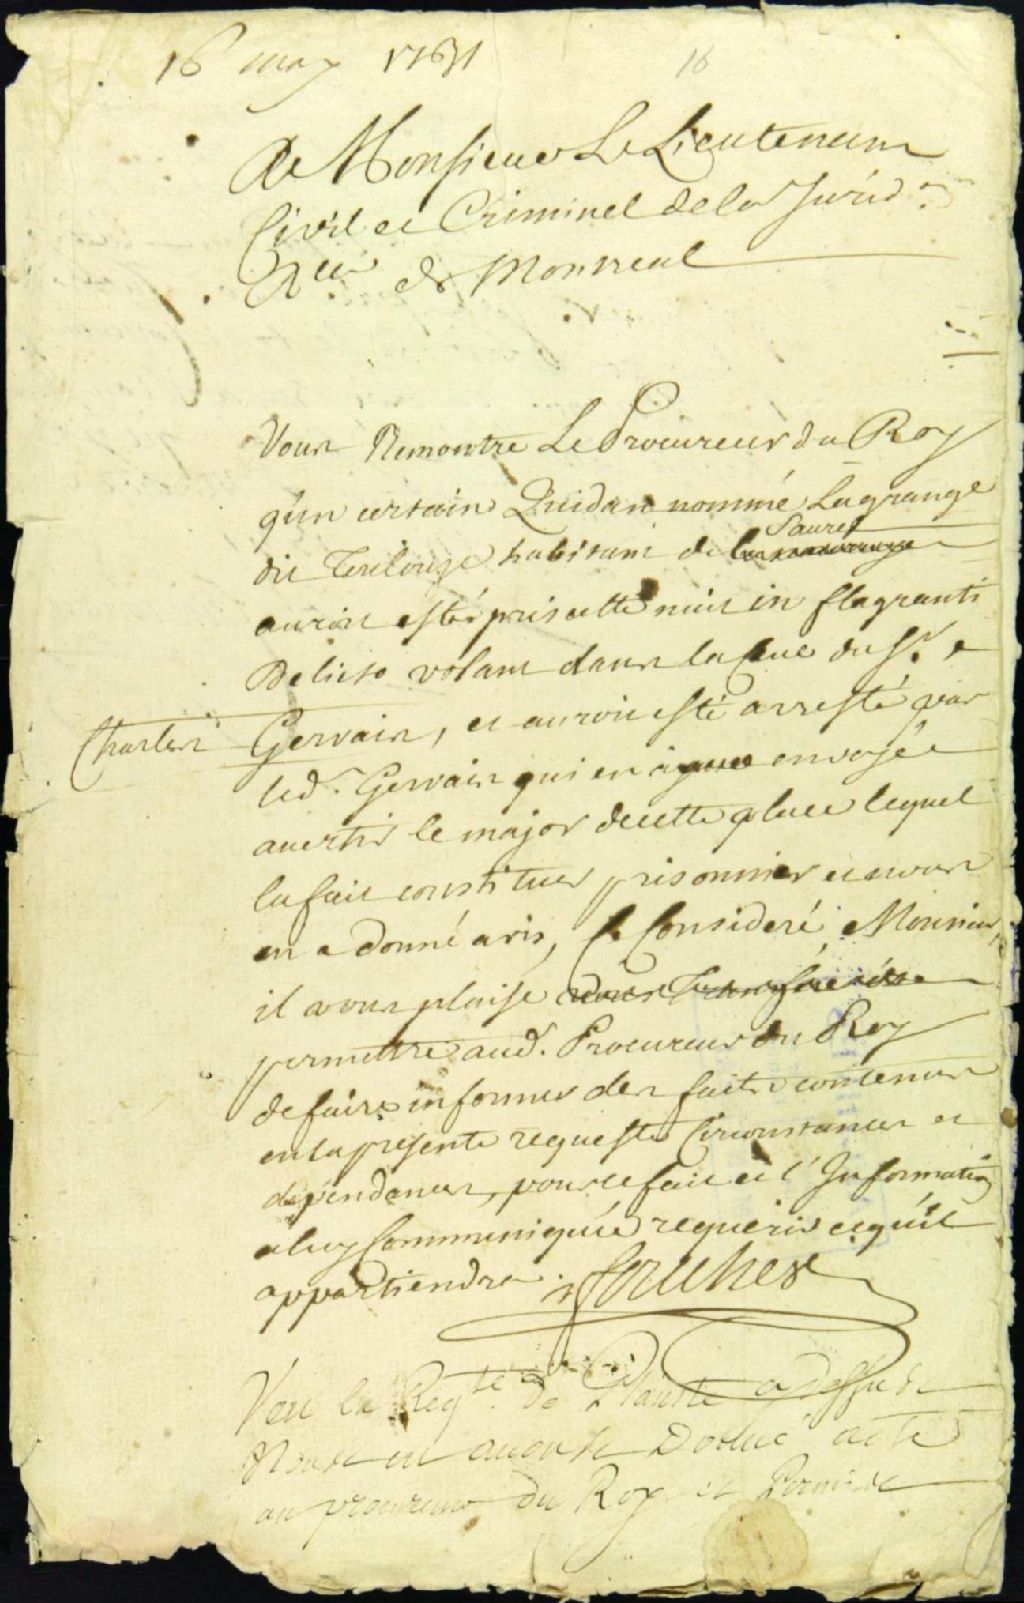 16 may 1751
16
A Monsieur Le Lieutenant
Civil et Criminel de la Jurid
de Montreal
Vous Remontre Le Procureur du Roy
qu'un certain Quidan nommé Lagrange
Saurel
dit Toulouze habitant de
auroit esté pris cette nuit in flagranti
Delicto volant dans la Cave du Sr.
Charles
Gervais, et auroit esté arresté par
led. Gervais qui en a envoyé
avertir le major de cette place lequel
la fait constituer prisonnier et nous
en a donné avis, Ce Consideré, Monsieur,
il vous plaise
permettre aud. Procureur du Roy
de faire informer des faits contenus
en la presente requeste Circonstances et
dependances, pour ce fait et l'Information
a luy Communiquée requerir ce qu'il
appartiendra. foucher
Veu la Reqte. de Plainte cy dessus
Nous en avons Donné acte
au procureur du Roy et Permis